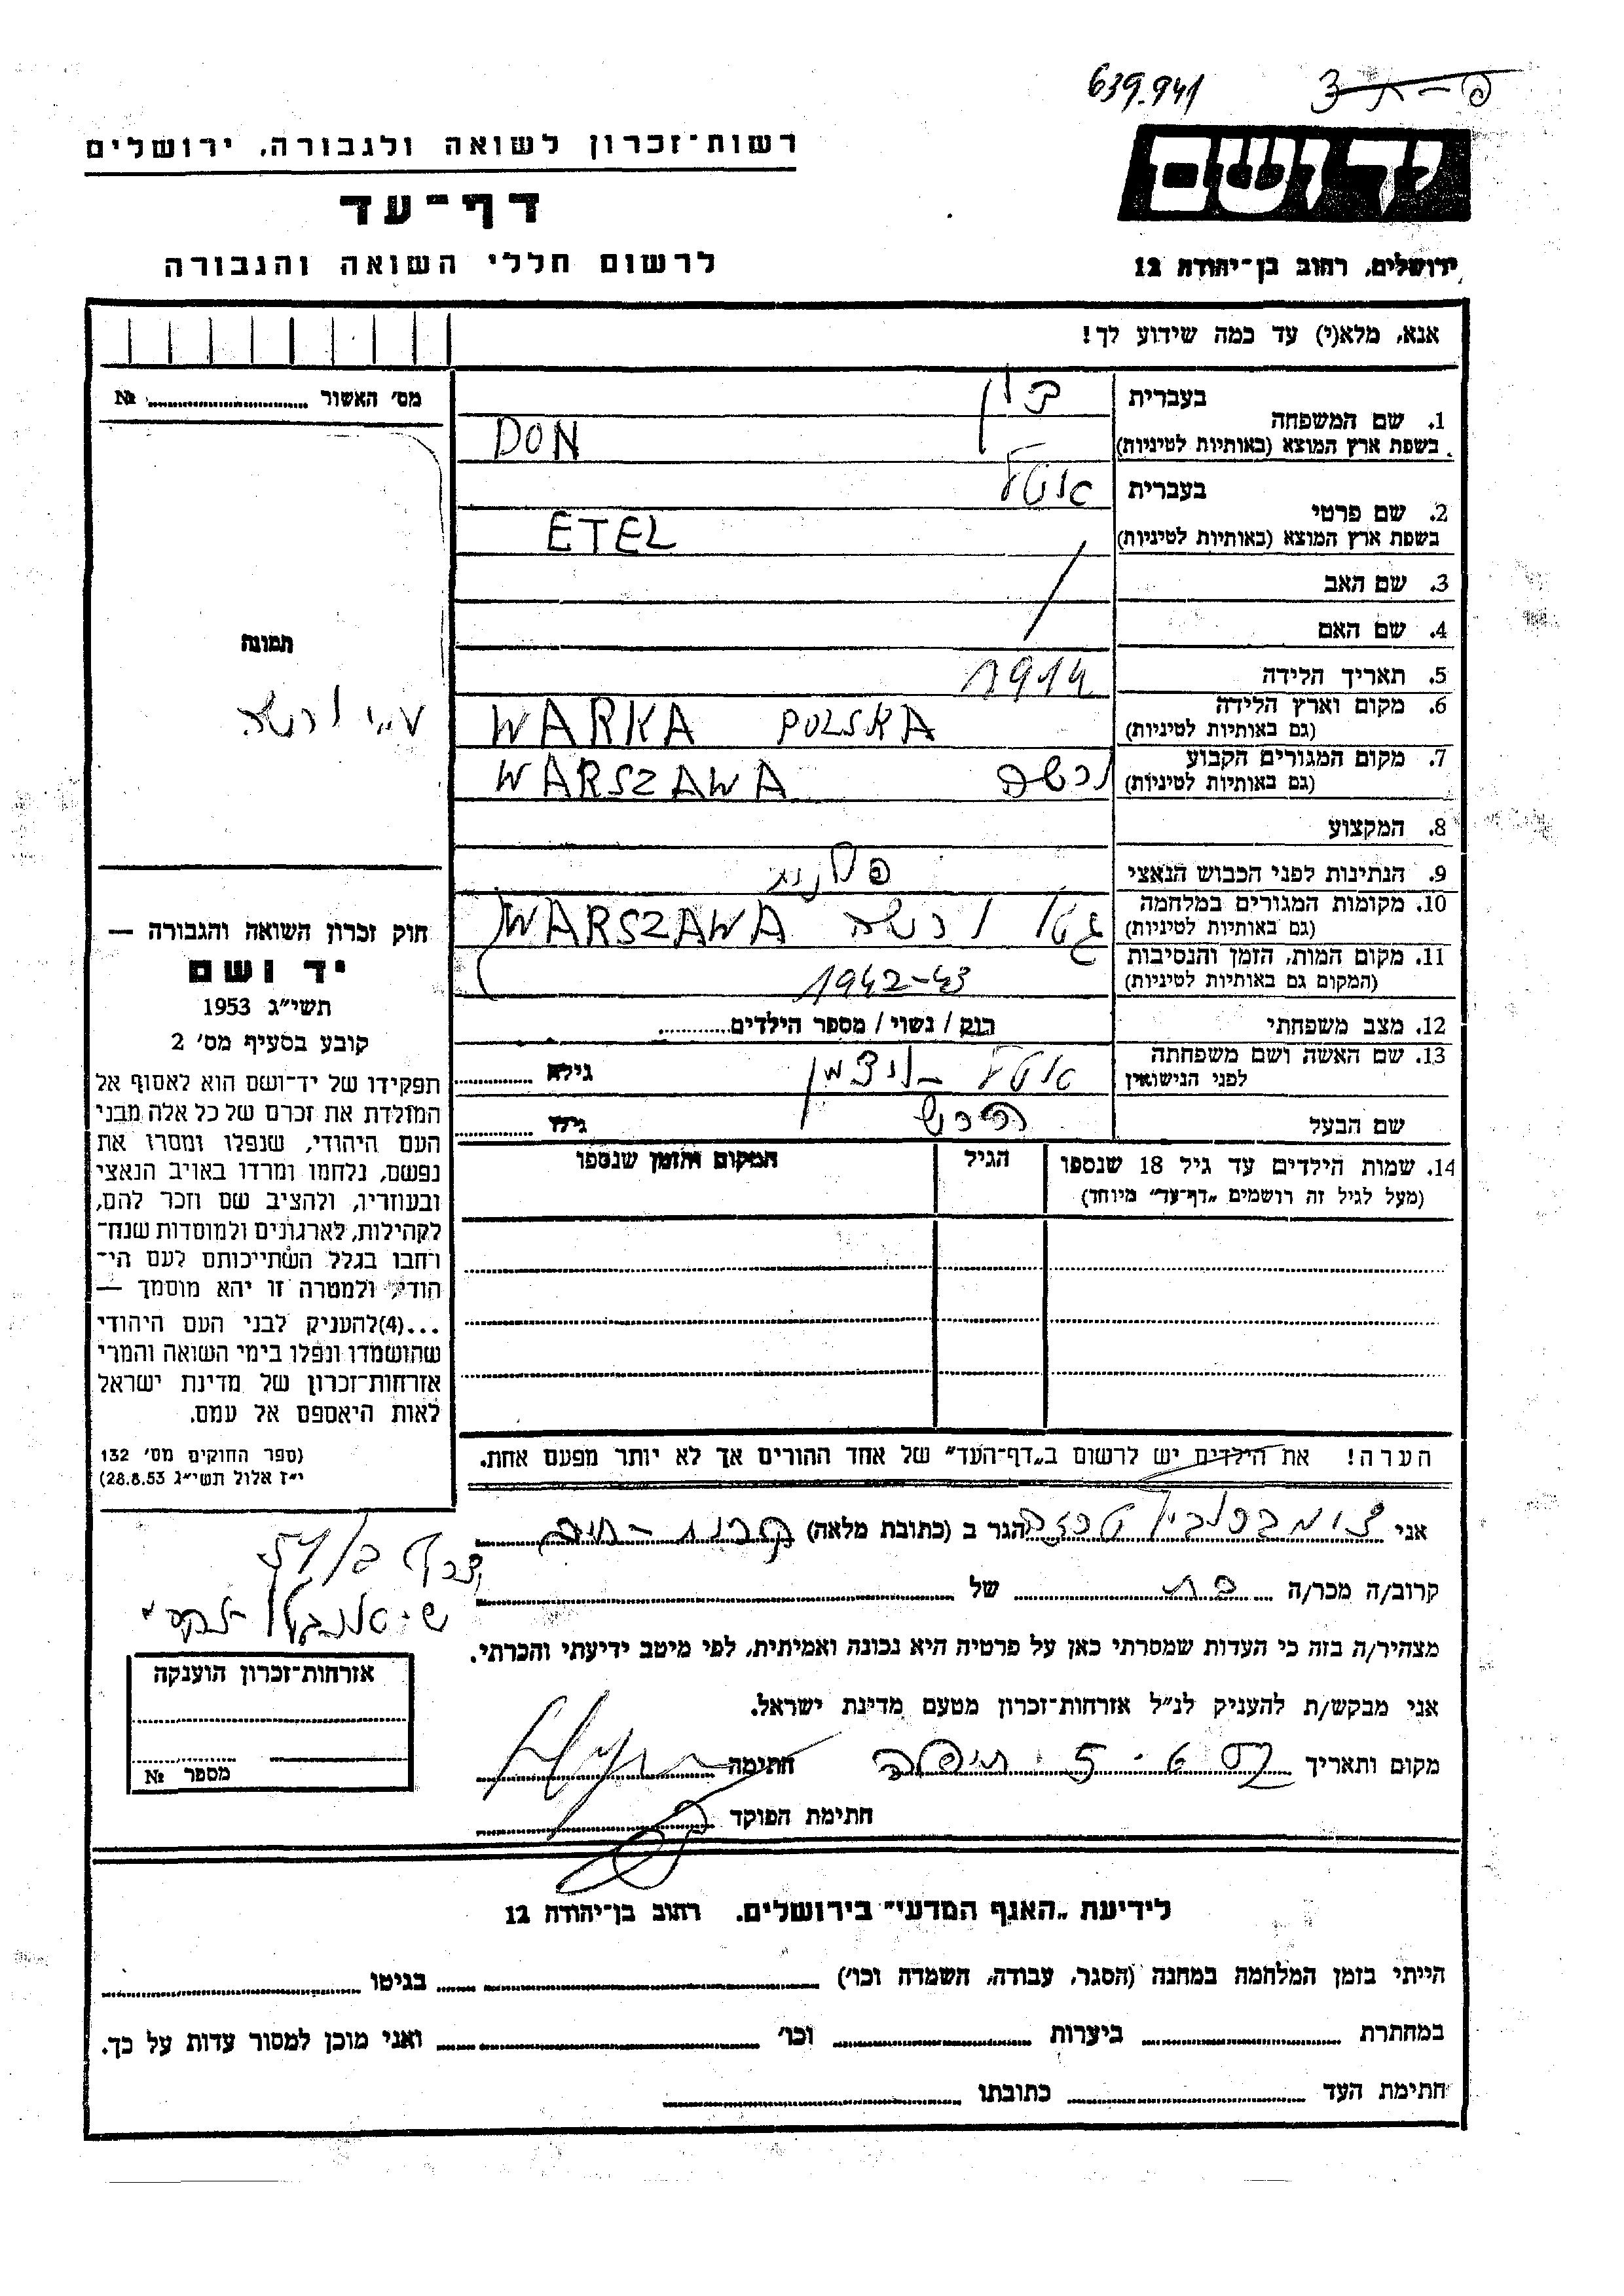 639.941
רשות־זכרון לשואה ולגבורה, ירושלים
דף־עד
לרשום חללי השואה והגבורה
יד ושם
ירושלים, רחוב בן־יהודה 12
אנא, מלא(י) עד כמה שידוע לך!
מס׳ האשור № ..........
1. שם המשפחה
בעברית דון
בשפת ארץ המוצא (באותיות לטיניות) DON
2. שם פרטי
בעברית אטל
בשפת ארץ המוצא (באותיות לטיניות) ETEL
3. שם האב
4. שם האם
5. תאריך הלידה 1914
6. מקום וארץ הלידה (גם באותיות לטיניות) WARKA POLSKA
7. מקום המגורים הקבוע (גם באותיות לטיניות) ורשה WARSZAWA
8. המקצוע
9. הנתינות לפני הכבוש הנאצי פולנית
10. מקומות המגורים במלחמה (גם באותיות לטיניות) גטו ורשה WARSZAWA
11. מקום המות, הזמן והנסיבות (המקום גם באותיות לטיניות) 1942-43
12. מצב משפחתי רווק / נשוי / מספר הילדים..........
13. שם האשה ושם משפחתה לפני הנישואין אטל גילא ..........
שם הבעל הירש גילו ..........
14. שמות הילדים עד גיל 18 שנספו (מעל לגיל זה רושמים „דף־עד״ מיוחד)
הגיל
המקום והזמן שנספו
תמונה
חוק זכרון השואה והגבורה —
יד ושם
תשי״ג 1953
קובע בסעיף מס׳ 2
תפקידו של יד־ושם הוא לאסוף אל
המולדת את זכרם של כל אלה מבני
העם היהודי, שנפלו ומסרו את
נפשם, נלחמו ומרדו באויב הנאצי
ובעוזריו, ולהציב שם וזכר להם,
לקהילות, לארגונים ולמוסדות שנח־
רחבו בגלל השתייכותם לעם הי־
הודי, ולמטרה זו יהא מוסמך —
...(4)להעניק לבני העם היהודי
שהושמדו ונפלו בימי השואה והמרי
אזרחות־זכרון של מדינת ישראל
לאות היאספם אל עמם.
(ספר החוקים מס׳ 132
י״ז אלול תשי״ג 28.8.53)
הערה! את הילדים יש לרשום ב„דף־העד״ של אחד ההורים אך לא יותר מפעם אחת.
אני .......... הגר ב (כתובת מלאה) קרית - חיים
צריף 51/ב
קרוב/ה מכר/ה .......... של ..........
מצהיר/ה בזה כי העדות שמסרתי כאן על פרטיה היא נכונה ואמיתית, לפי מיטב ידיעתי והכרתי.
אני מבקש/ת להעניק לנ״ל אזרחות־זכרון מטעם מדינת ישראל.
מקום ותאריך חיפה חתימה
חתימת הפוקד
אזרחות־זכרון הוענקה
מספר №
לידיעת „האגף המדעי״ בירושלים. רחוב בן־יהודה 12
הייתי בזמן המלחמה במחנה (הסגר, עבודה, השמדה וכו׳) .......... בגיטו ..........
במחתרת .......... ביערות .......... וכו׳ .......... ואני מוכן למסור עדות על כך.
חתימת העד .......... כתובתו ..........